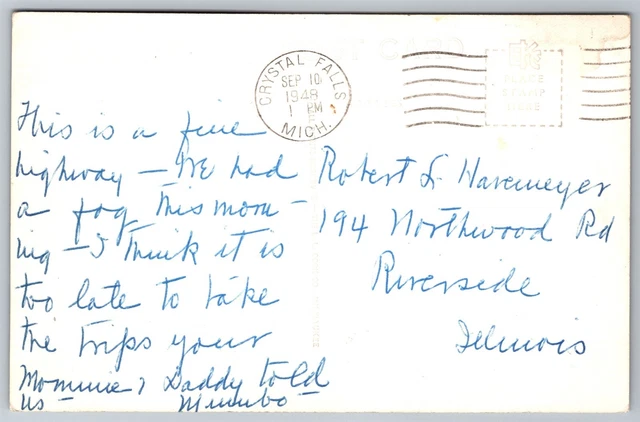 POST CARD
PLACE
STAMP
HERE
CRYSTAL FALLS
SEP 10
1948
1 PM
MICH.
This is a fine
highway — We had
a fog this morn-
ing — I think it is
too late to take
the trips your
Mommie & Daddy told
us —
Robert L. Havemeyer
194 Northwood Rd
Riverside
Illinois